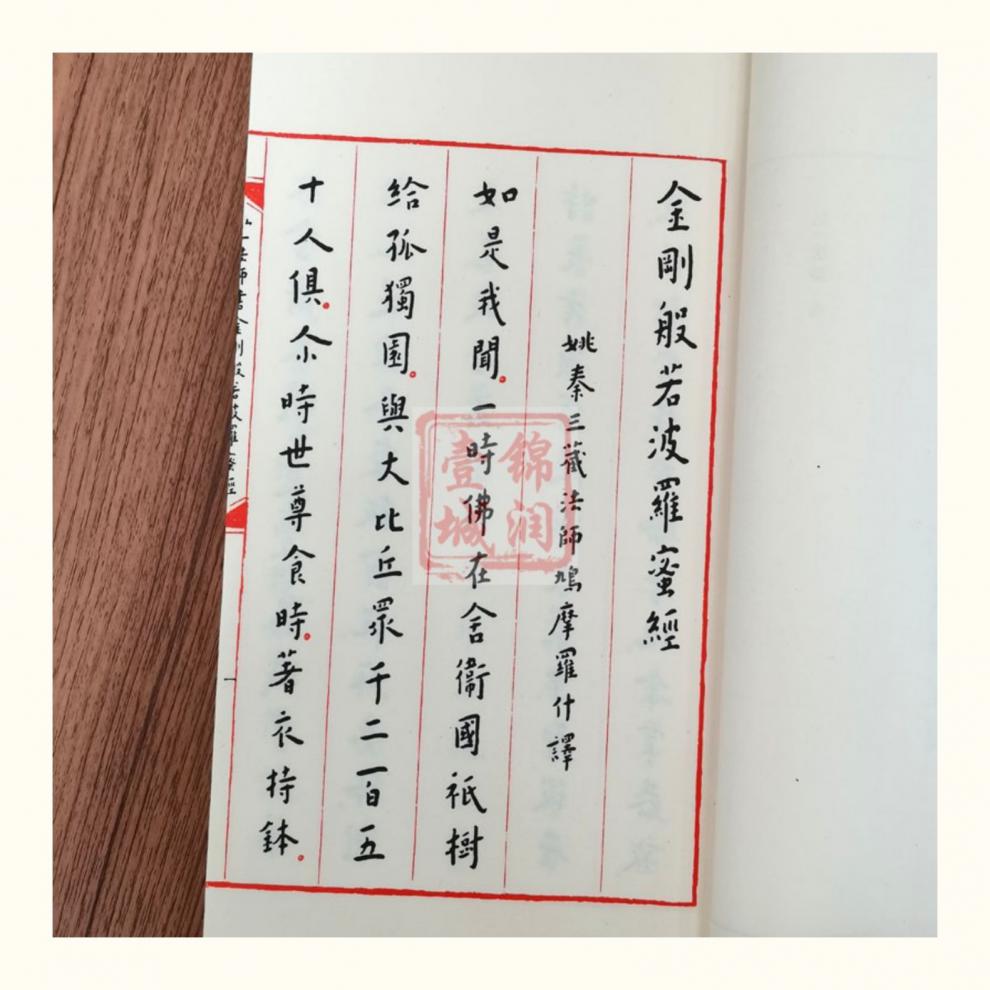 金剛般若波羅蜜經
姚秦三藏法師鳩摩羅什譯
如是我聞。一時佛在舍衞國祇樹
給孤獨園。與大比丘眾千二百五
十人俱。尒時世尊食時。著衣持鉢。
一
锦润
壹城